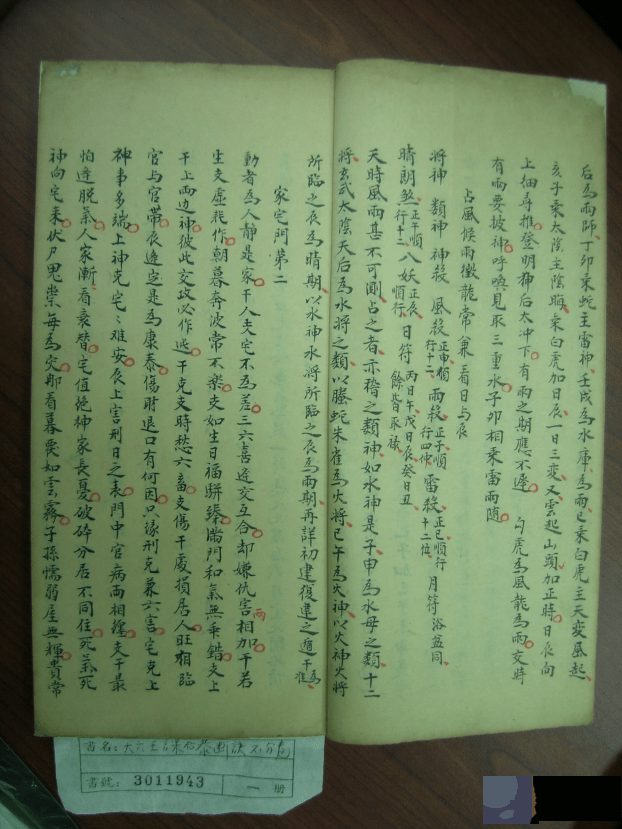 后為雨師丁卯乘蛇主雷神壬戌為水庫為雨巳乘白虎主天變風起
亥子乘太陰主陰晦乘白虎加日辰一日三變又雲起山頭加正時日辰向
上細尋推登明神后太冲下有雨之期應不逢 勾虎為風龍為雨交時
有雨要披神呼喚見取三重水子卯相乘雷雨隨
占風候雨徵龍常兼看日与辰
將神 類神 神殺 風殺正申順行十二 雨殺正子順行四仲 雷殺正巳順行十二位 月符浴盆同
晴朗煞正午順行十二 八妖正辰順行 日符丙日午戊日辰癸日丑餘皆取祿
天時風雨甚不可測占之者亦稽之類神如水神是子申為水母之類十二
將玄武太陰天后為水將之類以螣蛇朱雀為火將巳午為火神以火神火將
所臨之辰為晴期以水神水將所臨之辰為雨期再詳初建復建之遁干為准
家宅門第二
動者為人靜是家干人支宅不為差三六喜逢交互合却嫌仇害相加干若
生支虛耗作朝暮奔波常不樂支如生日福駢臻滿門和氣無乖錯支上
干上兩邊神彼此交政必作逃干克支時愁六畜支傷干廢損居人旺相臨
官与官帶辰逢定是為康泰傷財退口有何因只緣刑克兼六害宅克上
神事多端上神克宅宅难安辰上害刑日之表門中官病兩相纏支干最
怕逢脫氣人家漸看衰替宅值絕神家長憂破碎分居不同住死氣死
神向宅来伏尸鬼祟每為灾却看暮貴如雲霧子孫懦弱屋無輝貴常
書名：大六壬
書號： 3011943
一 册